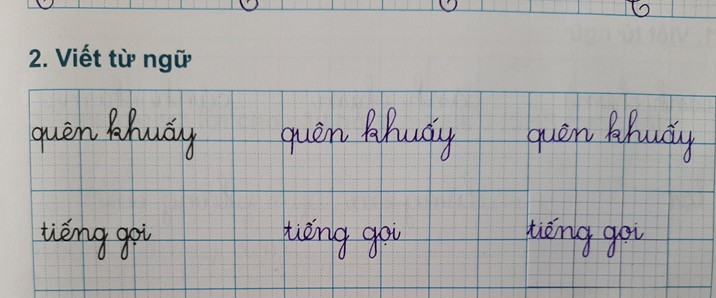 2. Viết từ ngữ
quên khuấy quên khuấy quên khuấy
tiếng gọi tiếng gọi tiếng gọi